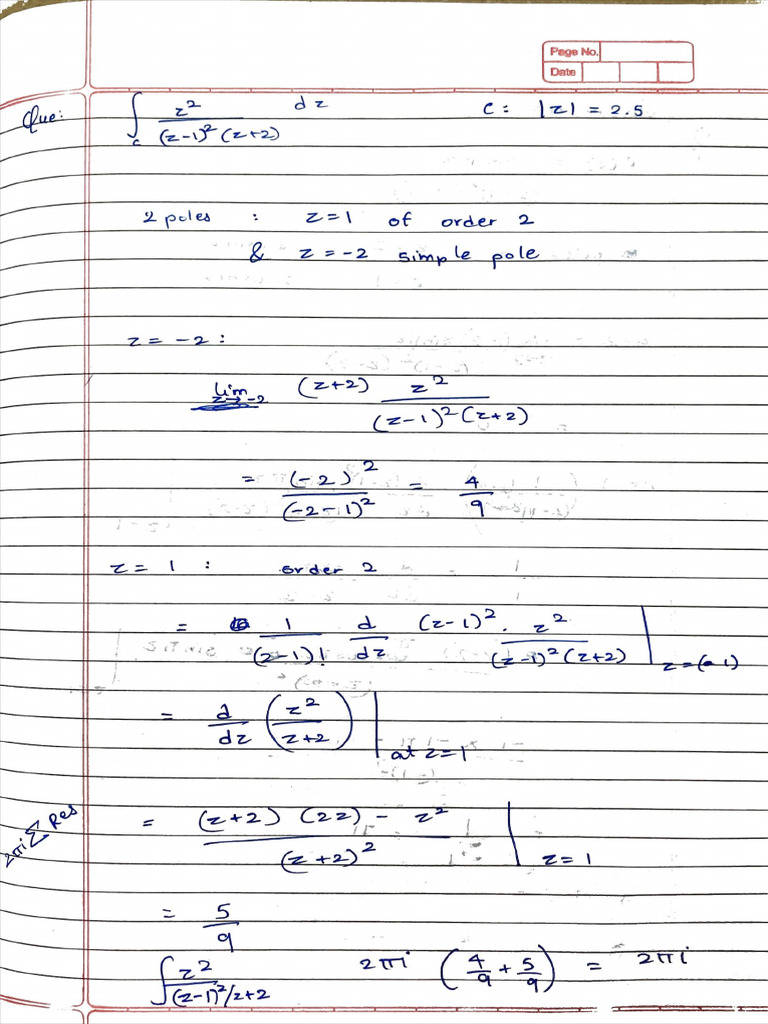 Page No.
Date
Que: ∫_c z² / (z-1)² (z+2) dz C: |z| = 2.5
2 poles : z=1 of order 2
& z = -2 simple pole
z = -2 :
lim z→-2 (z+2) z² / (z-1)² (z+2)
= (-2)² / (-2-1)² = 4/9
z = 1 : order 2
= 1/(2-1)! d/dz (z-1)² · z² / (z-1)² (z+2) |
= d/dz (z² / z+2) | at z=1
2πi Σ Res
= (z+2) (2z) - z² / (z+2)² | z=1
= 5/9
∫ z² / (z-1)²/z+2 2πi (4/9 + 5/9) = 2πi